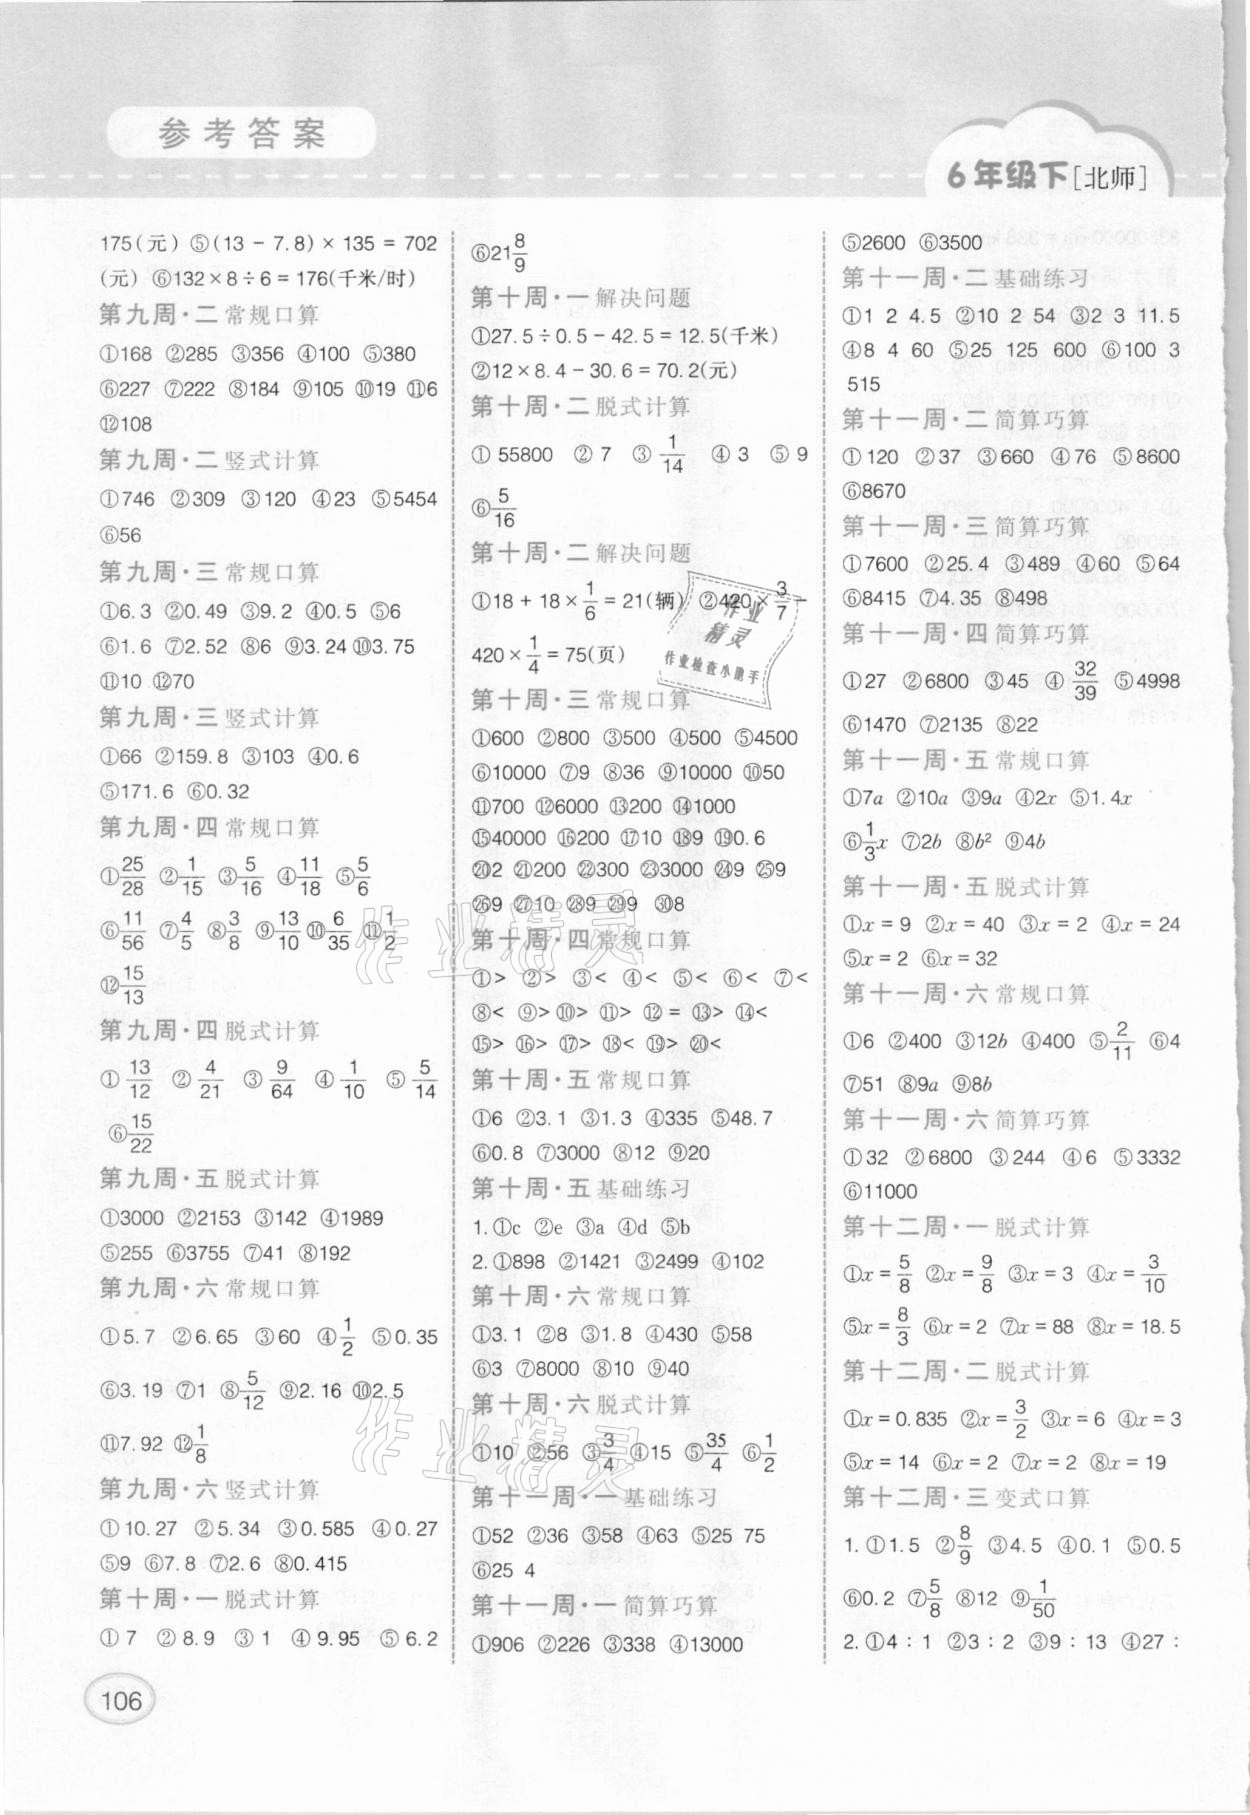 参考答案
6年级下[北师]
175(元) ⑤(13 - 7.8) × 135 = 702
(元) ⑥132 × 8 ÷ 6 = 176(千米/时)
第九周·二 常规口算
①168 ②285 ③356 ④100 ⑤380
⑥227 ⑦222 ⑧184 ⑨105 ⑩19 ⑪6
⑫108
第九周·二 竖式计算
①746 ②309 ③120 ④23 ⑤5454
⑥56
第九周·三 常规口算
①6.3 ②0.49 ③9.2 ④0.5 ⑤6
⑥1.6 ⑦2.52 ⑧6 ⑨3.24 ⑩3.75
⑪10 ⑫70
第九周·三 竖式计算
①66 ②159.8 ③103 ④0.6
⑤171.6 ⑥0.32
第九周·四 常规口算
①25/28 ②1/15 ③5/16 ④11/18 ⑤5/6
⑥11/56 ⑦4/5 ⑧3/8 ⑨13/10 ⑩6/35 ⑪1/2
⑫15/13
第九周·四 脱式计算
①13/12 ②4/21 ③9/64 ④1/10 ⑤5/14
⑥15/22
第九周·五 脱式计算
①3000 ②2153 ③142 ④1989
⑤255 ⑥3755 ⑦41 ⑧192
第九周·六 常规口算
①5.7 ②6.65 ③60 ④1/2 ⑤0.35
⑥3.19 ⑦1 ⑧5/12 ⑨2.16 ⑩2.5
⑪7.92 ⑫1/8
第九周·六 竖式计算
①10.27 ②5.34 ③0.585 ④0.27
⑤9 ⑥7.8 ⑦2.6 ⑧0.415
第十周·一 脱式计算
①7 ②8.9 ③1 ④9.95 ⑤6.2
106
⑥21 8/9
第十周·一 解决问题
①27.5 ÷ 0.5 - 42.5 = 12.5(千米)
②12 × 8.4 - 30.6 = 70.2(元)
第十周·二 脱式计算
①55800 ②7 ③1/14 ④3 ⑤9
⑥5/16
第十周·二 解决问题
①18 + 18 × 1/6 = 21(辆) ②420 × 3/7 -
420 × 1/4 = 75(页)
第十周·三 常规口算
①600 ②800 ③500 ④500 ⑤4500
⑥10000 ⑦9 ⑧36 ⑨10000 ⑩50
⑪700 ⑫6000 ⑬200 ⑭1000
⑮40000 ⑯200 ⑰10 ⑱9 ⑲0.6
⑳2 ㉑200 ㉒300 ㉓3000 ㉔9 ㉕9
㉖9 ㉗10 ㉘9 ㉙9 ㉚8
第十周·四 常规口算
①> ②> ③< ④< ⑤< ⑥< ⑦<
⑧< ⑨> ⑩> ⑪> ⑫= ⑬> ⑭<
⑮> ⑯> ⑰> ⑱< ⑲> ⑳<
第十周·五 常规口算
①6 ②3.1 ③1.3 ④335 ⑤48.7
⑥0.8 ⑦3000 ⑧12 ⑨20
第十周·五 基础练习
1.①c ②e ③a ④d ⑤b
2.①898 ②1421 ③2499 ④102
第十周·六 常规口算
①3.1 ②8 ③1.8 ④430 ⑤58
⑥3 ⑦8000 ⑧10 ⑨40
第十周·六 脱式计算
①10 ②56 ③3/4 ④15 ⑤35/4 ⑥1/2
第十一周·一 基础练习
①52 ②36 ③58 ④63 ⑤25 75
⑥25 4
第十一周·一 简算巧算
①906 ②226 ③338 ④13000
⑤2600 ⑥3500
第十一周·二 基础练习
①1 2 4.5 ②10 2 54 ③2 3 11.5
④8 4 60 ⑤25 125 600 ⑥100 3
515
第十一周·二 简算巧算
①120 ②37 ③660 ④76 ⑤8600
⑥8670
第十一周·三 简算巧算
①7600 ②25.4 ③489 ④60 ⑤64
⑥8415 ⑦4.35 ⑧498
第十一周·四 简算巧算
①27 ②6800 ③45 ④32/39 ⑤4998
⑥1470 ⑦2135 ⑧22
第十一周·五 常规口算
①7a ②10a ③9a ④2x ⑤1.4x
⑥1/3x ⑦2b ⑧b² ⑨4b
第十一周·五 脱式计算
①x = 9 ②x = 40 ③x = 2 ④x = 24
⑤x = 2 ⑥x = 32
第十一周·六 常规口算
①6 ②400 ③12b ④400 ⑤2/11 ⑥4
⑦51 ⑧9a ⑨8b
第十一周·六 简算巧算
①32 ②6800 ③244 ④6 ⑤3332
⑥11000
第十二周·一 脱式计算
①x = 5/8 ②x = 9/8 ③x = 3 ④x = 3/10
⑤x = 8/3 ⑥x = 2 ⑦x = 88 ⑧x = 18.5
第十二周·二 脱式计算
①x = 0.835 ②x = 3/2 ③x = 6 ④x = 3
⑤x = 14 ⑥x = 2 ⑦x = 2 ⑧x = 19
第十二周·三 变式口算
1.①1.5 ②8/9 ③4.5 ④0.1 ⑤0.5
⑥0.2 ⑦5/8 ⑧12 ⑨1/50
2.①4 : 1 ②3 : 2 ③9 : 13 ④27 :
作业
精灵
作业检查小助手
作业精灵
作业精灵